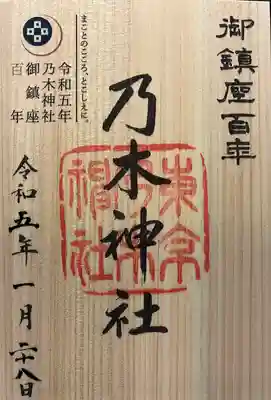 御鎮座百年
まことのこころ、とこしえに。
令和五年
乃木神社
御鎮座
百年
乃木神社
東京
乃木
神社
令和五年一月二十八日